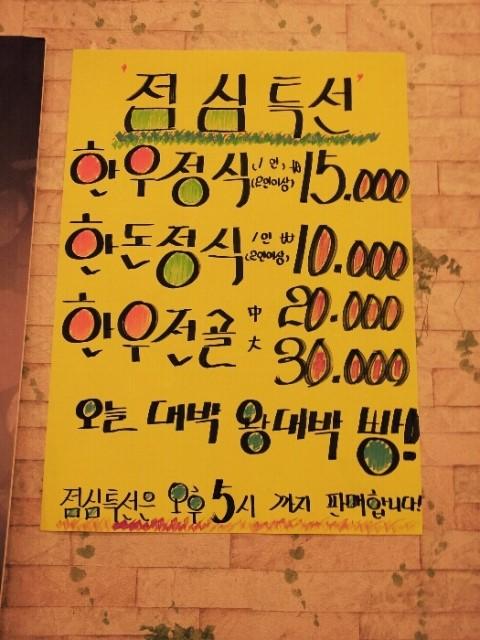 '점심특선'
한우정식 (1인분 (2인이상) 15.000
한돈정식 1인분 (2인이상) 10.000
한우전골 中 20.000
大 30.000
오늘 대박 왕대박 빵!
점심특선은 오후 5시 까지 판매합니다!